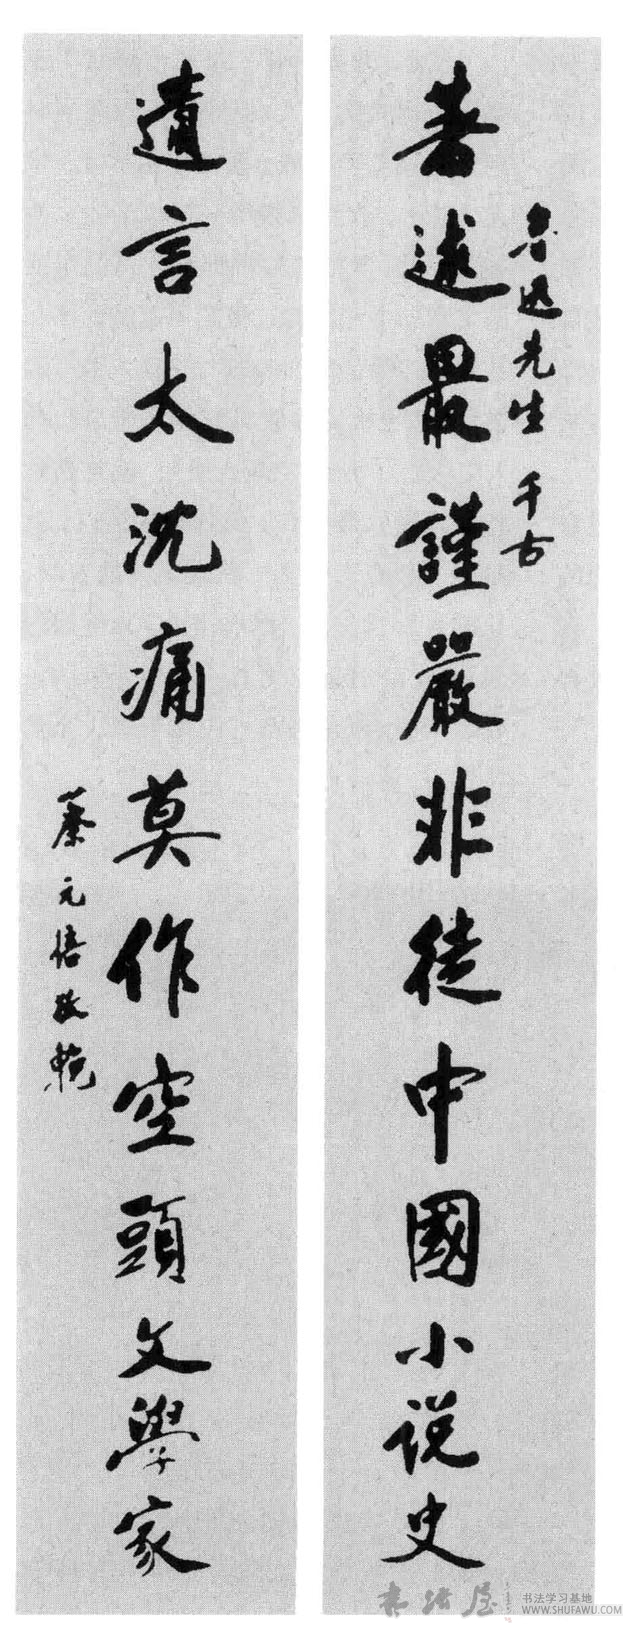 魯迅先生 千古
著述最謹嚴非徒中國小説史
遺言太沈痛莫作空頭文學家
蔡元培敬輓
書法屋
书法学习基地
WWW.SHUFAWU.COM